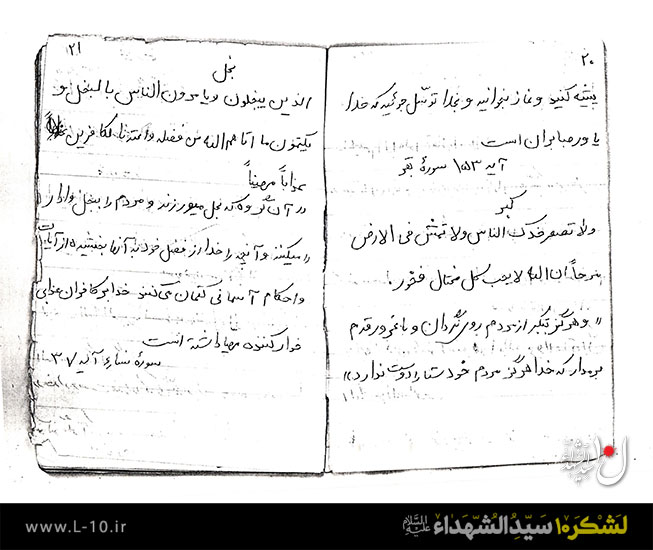 ۲۰
پیشه کنید و نماز بخوانید و بخدا توسّل جوئید که خدا
یاور صابران است
آیه ۱۵۳ سورهٔ بقر
کبر
ولا تصعر خدک الناس ولا تمش فی الارض
مرحاً ان الله لا یحب کل مختال فخور.
«و هرگز بتکبر از مردم روی نگردان و با غرور قدم
برمدار که خدا هرگز مردم خودستا را دوست ندارد»
۲۱
بخل
الذین یبخلون و یامرون الناس بالبخل و
یکتمون ما اتا هم الله من فضله و اعتدنا للکافرین
عذاباً مهیناً
آن گروه که بخل میورزند و مردم را ببخل وادار
میکنند و آنچه را خدا از فضل خود به آنها بخشیده از آیات
و احکام آسمانی کتمان می‌کنند خدا بر کافران عذابی
خوار کننده مهیا داشته است
سورهٔ نساء آیه ۳۷
لشکر ۱۰ سیدالشهداء علیه‌السلام
www.L-10.ir